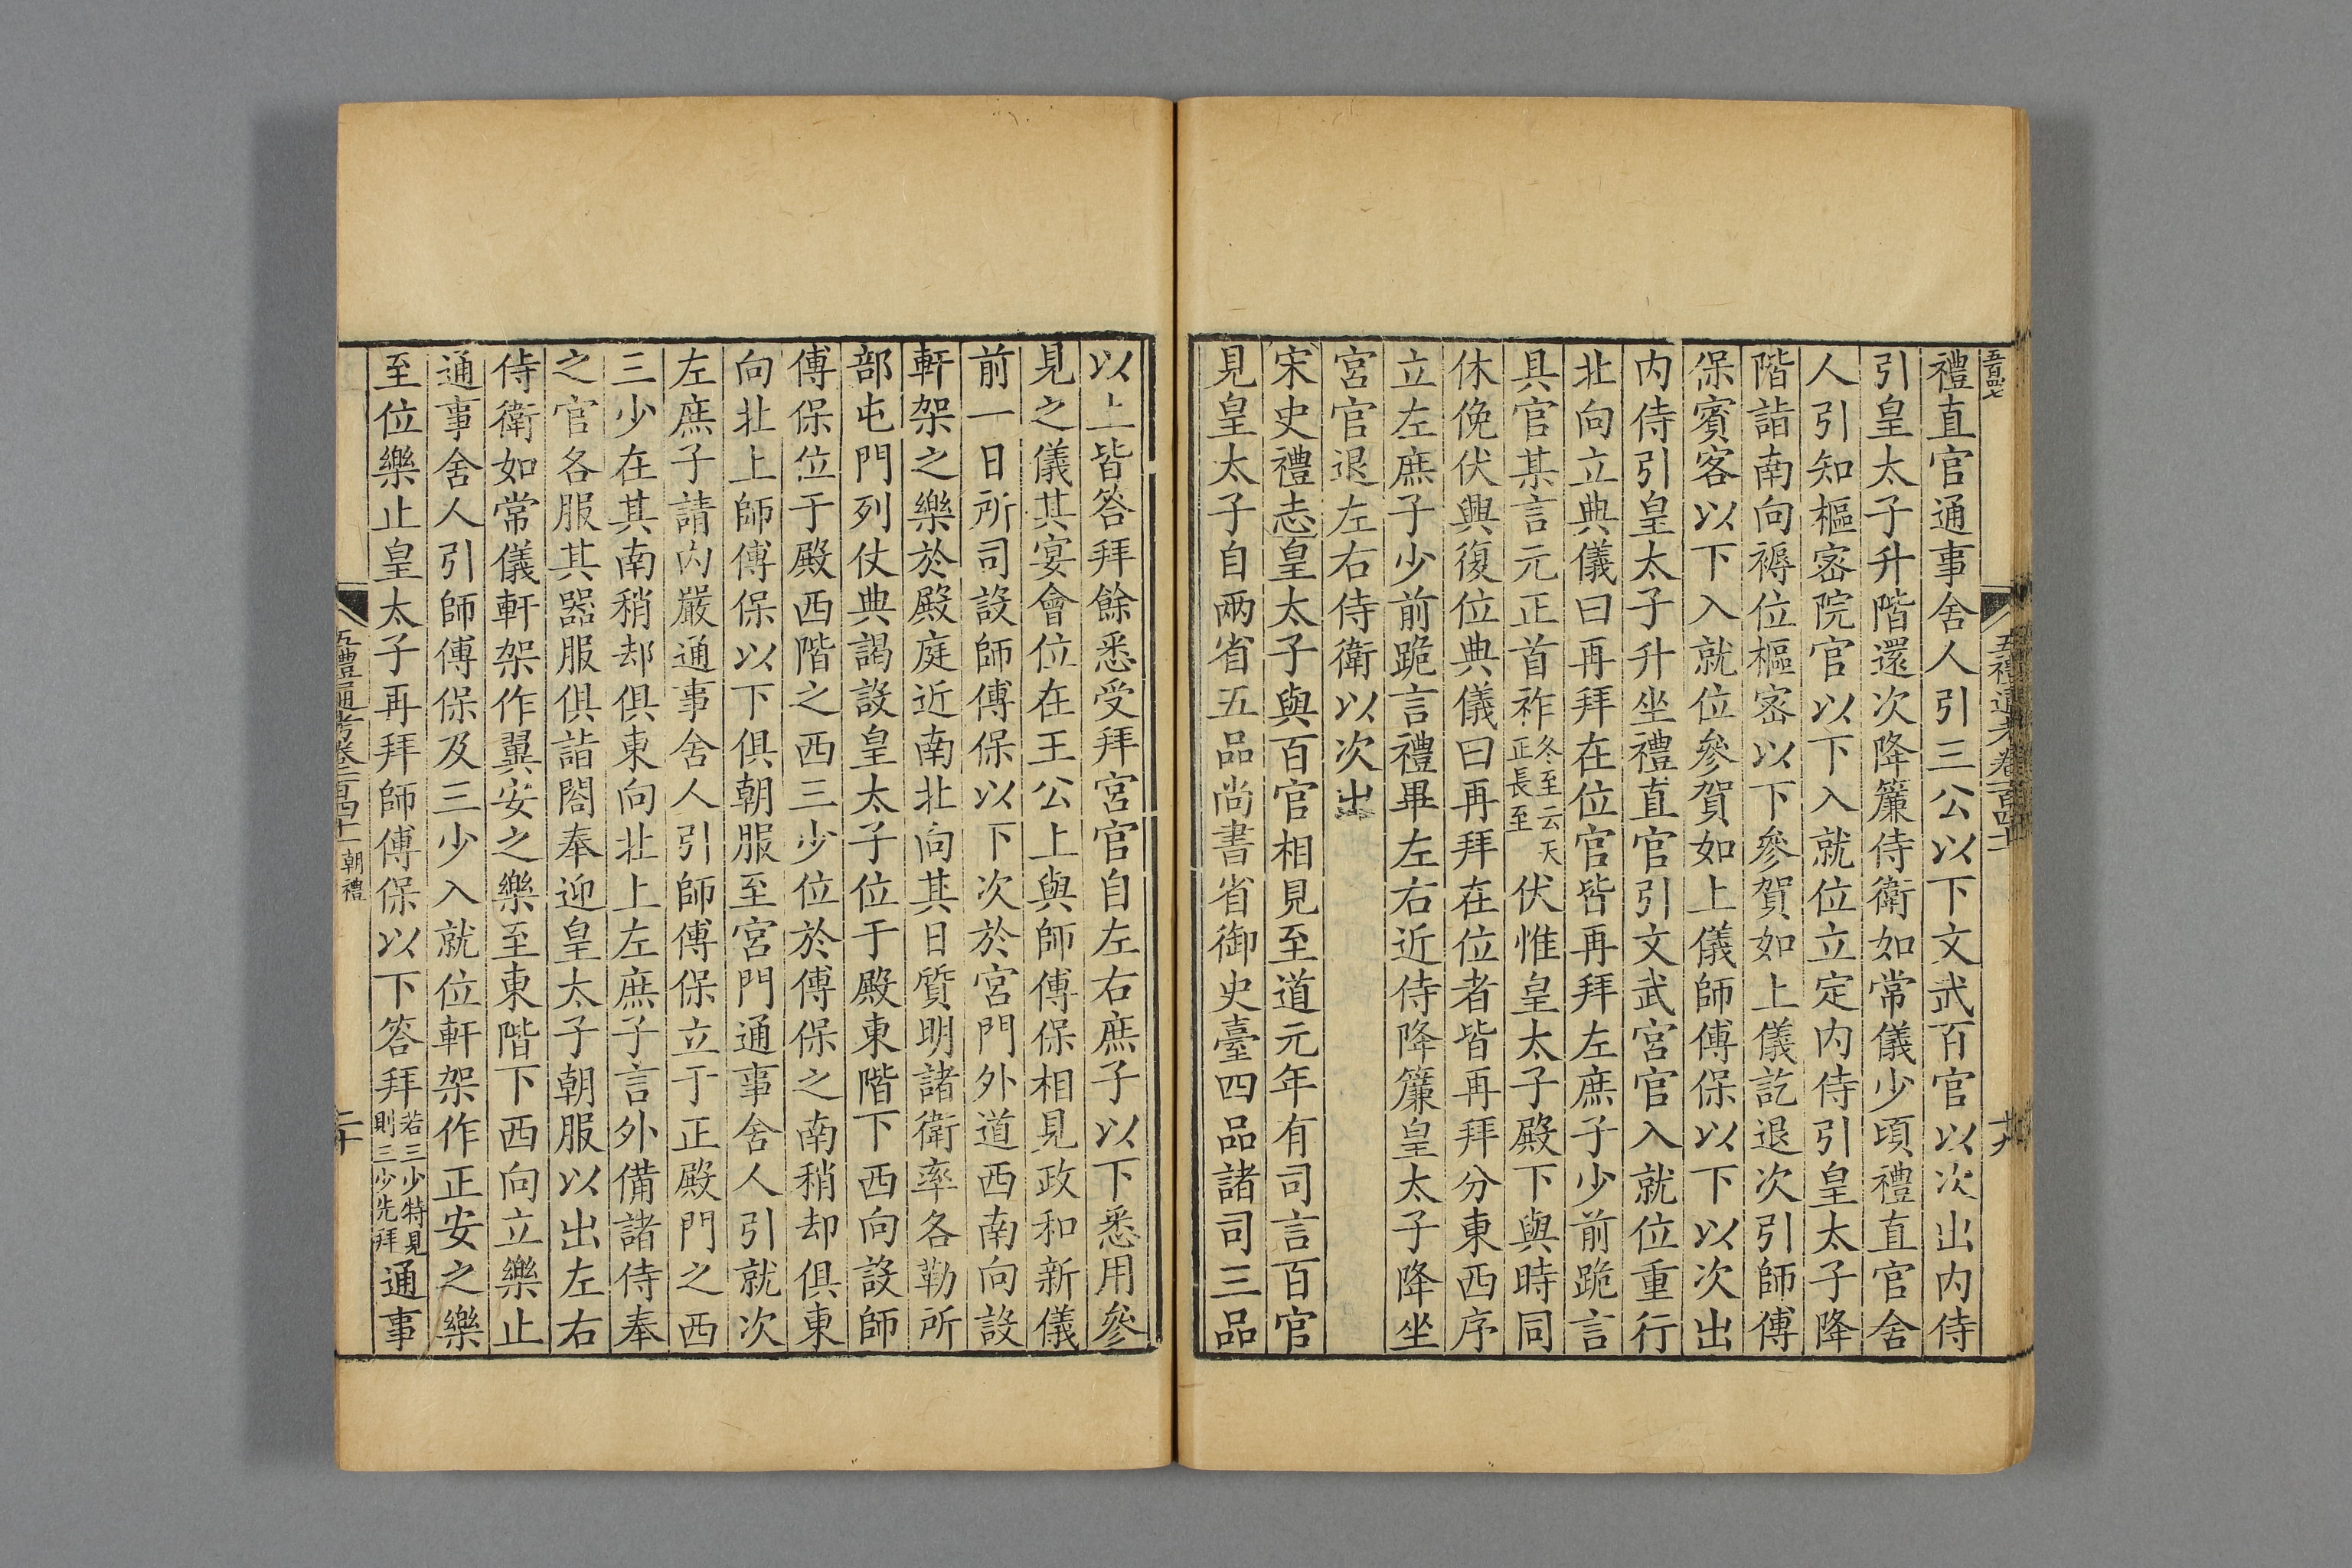 禮直官通事舍人引三公以下文武百官以次出内侍
引皇太子升階還次降簾侍衛如常儀少頃禮直官舍
人引知樞宻院官以下入就位立定内侍引皇太子降
階詣南向褥位樞宻以下參賀如上儀訖退次引師傅
保賓客以下入就位參賀如上儀師傅保以下以次出
内侍引皇太子升坐禮直官引文武宮官入就位重行
北向立典儀曰再拜在位官皆再拜左庶子少前跪言
具官某言元正首祚冬至云天正長至伏惟皇太子殿下與時同
休俛伏興復位典儀曰再拜在位者皆再拜分東西序
立左庶子少前跪言禮畢左右近侍降簾皇太子降坐
宮官退左右侍衛以次出
宋史禮志皇太子與百官相見至道元年有司言百官
見皇太子自兩省五品尚書省御史臺四品諸司三品
以上皆答拜餘悉受拜宮官自左右庶子以下悉用參
見之儀其宴會位在王公上與師傅保相見政和新儀
前一日所司設師傅保以下次於宮門外道西南向設
軒架之樂於殿庭近南北向其日質明諸衛率各勒所
部屯門列仗典謁設皇太子位于殿東階下西向設師
傅保位于殿西階之西三少位於傅保之南稍却俱東
向北上師傅保以下俱朝服至宮門通事舍人引就次
左庶子請内嚴通事舍人引師傅保立于正殿門之西
三少在其南稍却俱東向北上左庶子言外備諸侍奉
之官各服其器服俱詣閤奉迎皇太子朝服以出左右
侍衛如常儀軒架作翼安之樂至東階下西向立樂止
通事舍人引師傅保及三少入就位軒架作正安之樂
至位樂止皇太子再拜師傅保以下答拜若三少特見則三少先拜通事
五禮通考卷二百四十一 朝禮 二十